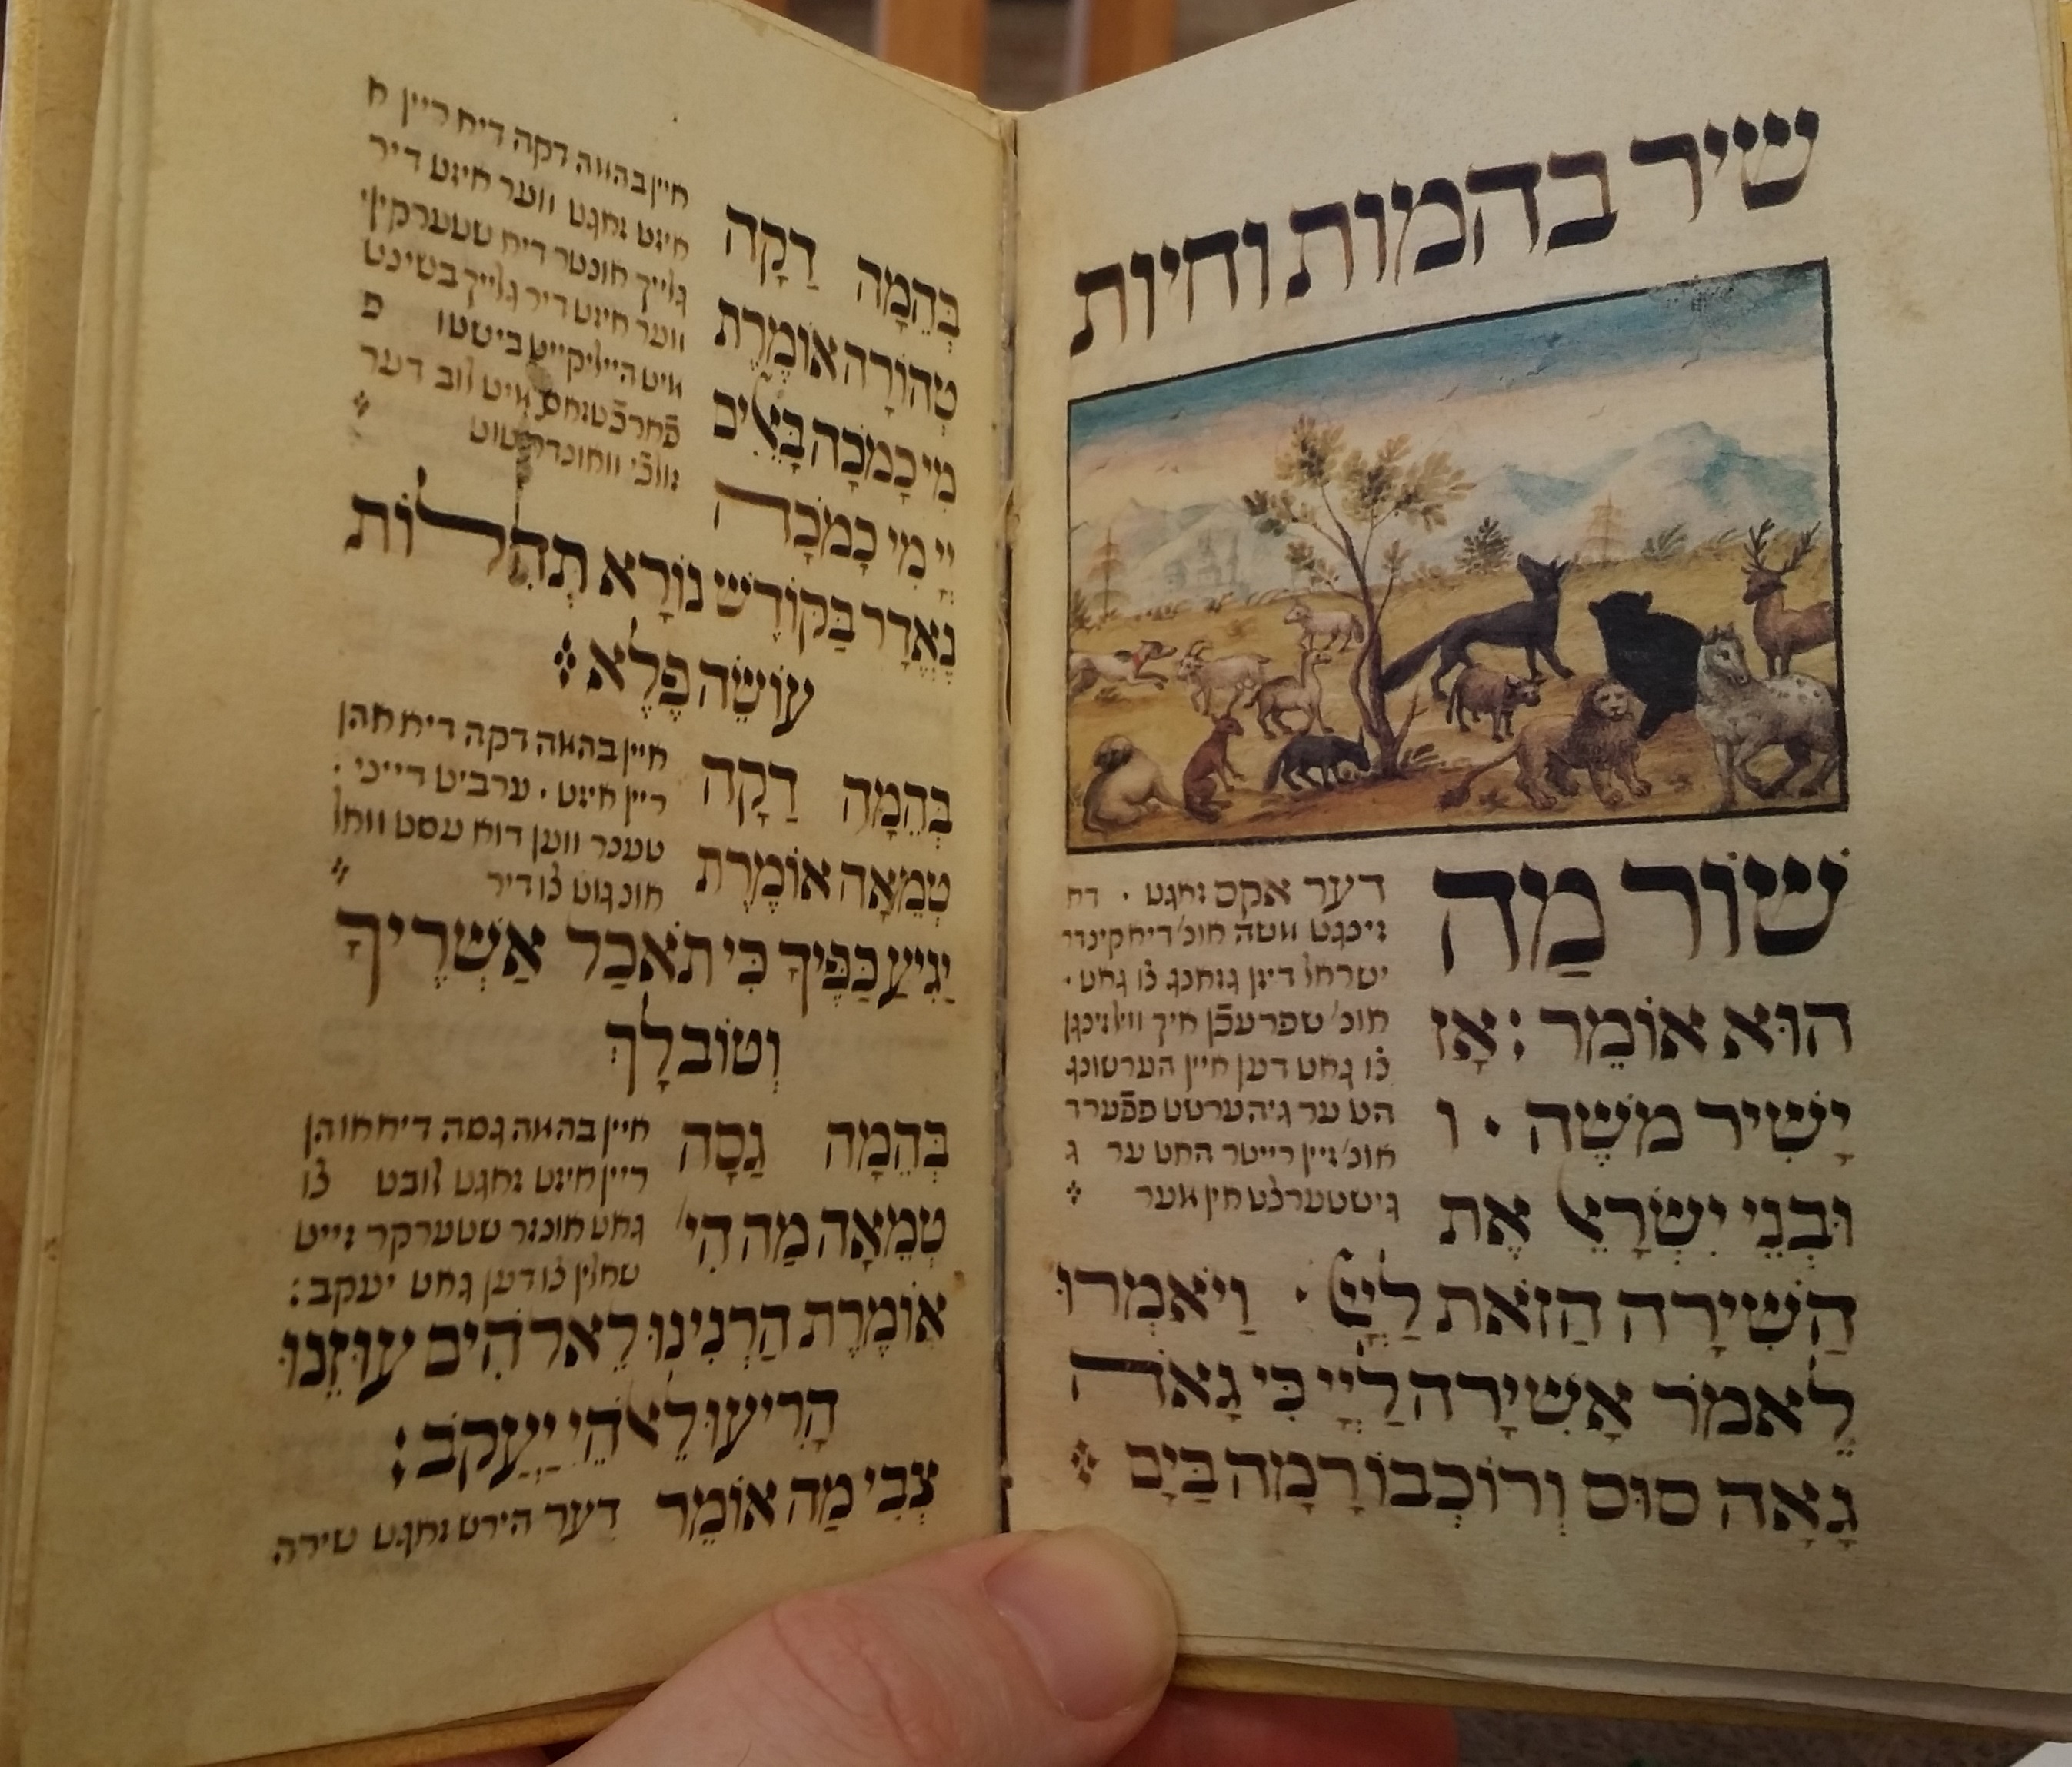 שיר בהמות וחיות
שׁוֹר מַה
הוּא אוֹמֵר : אָז
יָשִׁיר מֹשֶׁה · ו
וּבְנֵי יִשְׂרָאֵל אֶת
הַשִּׁירָה הַזֹּאת לַיְיָ · וַיֹּאמְרוּ
לֵאמֹר אָשִׁירָה לַיְיָ כִּי גָאֹה
גָּאָה סוּס וְרוֹכְבוֹ רָמָה בַיָּם
דער אקס זאגט · דא
זינגט משה אונ' דיא קינדר
ישראל דיזן גזאנג צו גאט ·
צו גאט דען איין הערשונג
בְּהֵמָה דַקָּה
טְהוֹרָה אוֹמֶרֶת
מִי כָמֹכָה בָּאֵלִים
יְיָ מִי כָּמֹכָה
נֶאְדָּר בַּקּוֹדֶשׁ נוֹרָא תְהִלּוֹת
עוֹשֵׂה פֶלֶא
איין בהמה דקה דיא ריין א
איזט זאגט ווער איזט דיר
גלייך אונטר דיא שטערקין
ווער איזט דיר גלייך בשיצט
בְּהֵמָה דַקָּה
טְמֵאָה אוֹמֶרֶת
יְגִיעַ כַּפֶּיךָ כִּי תֹאכַל אַשְׁרֶיךָ
וְטוֹב לָךְ
איין בהמה דקה דיא אהן
ריין איזט · ערביט דייני
טענר ווען דוא עסט וואל
אונ גוט צו דיר
בְּהֵמָה גַסָּה
טְמֵאָה מַה הִי'
אוֹמֶרֶת הַרְנִינוּ לֵאלֹהִים עוּזֵּנוּ
הָרִיעוּ לֵאלֹהֵי יַעֲקֹב :
איין בהמה גסה דיא אוהן
ריין איזט זאגט לובט צו
גאט אונזר שטערקר זייט
שאלין צו דען גאט יעקב :
צְבִי מַה אוֹמֵר
דער הירש זאגט שירה